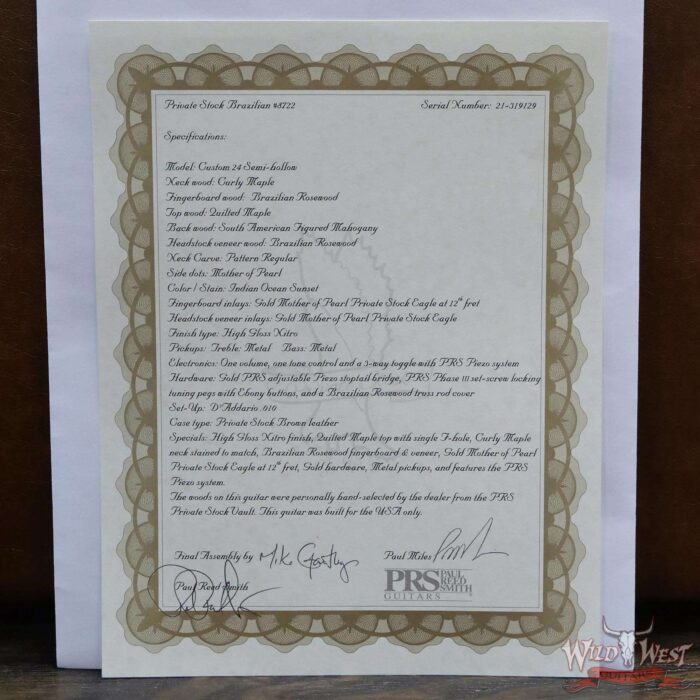 Private Stock Brazilian #8722 Serial Number: 21-319129
Specifications:
Model: Custom 24 Semi-hollow
Neck wood: Curly Maple
Fingerboard wood: Brazilian Rosewood
Top wood: Quilted Maple
Back wood: South American Figured Mahogany
Headstock veneer wood: Brazilian Rosewood
Neck Carve: Pattern Regular
Side dots: Mother of Pearl
Color / Stain: Indian Ocean Sunset
Fingerboard inlays: Gold Mother of Pearl Private Stock Eagle at 12th fret
Headstock veneer inlays: Gold Mother of Pearl Private Stock Eagle
Finish type: High Gloss Nitro
Pickups: Treble: Metal Bass: Metal
Electronics: One volume, one tone control and a 3-way toggle with PRS Piezo system
Hardware: Gold PRS adjustable Piezo stoptail bridge, PRS Phase III set-screw locking
tuning pegs with Ebony buttons, and a Brazilian Rosewood truss rod cover
Set-Up: D'Addario .010
Case type: Private Stock Brown leather
Specials: High Gloss Nitro finish, Quilted Maple top with single F-hole, Curly Maple
neck stained to match, Brazilian Rosewood fingerboard & veneer, Gold Mother of Pearl
Private Stock Eagle at 12th fret, Gold hardware, Metal pickups, and features the PRS
Piezo system.
The woods on this guitar were personally hand-selected by the dealer from the PRS
Private Stock Vault. This guitar was built for the USA only.
Final Assembly by Mike Paul Miles
Paul Reed Smith
PRS PAUL REED SMITH
GUITARS
WILD WEST
GUITARS